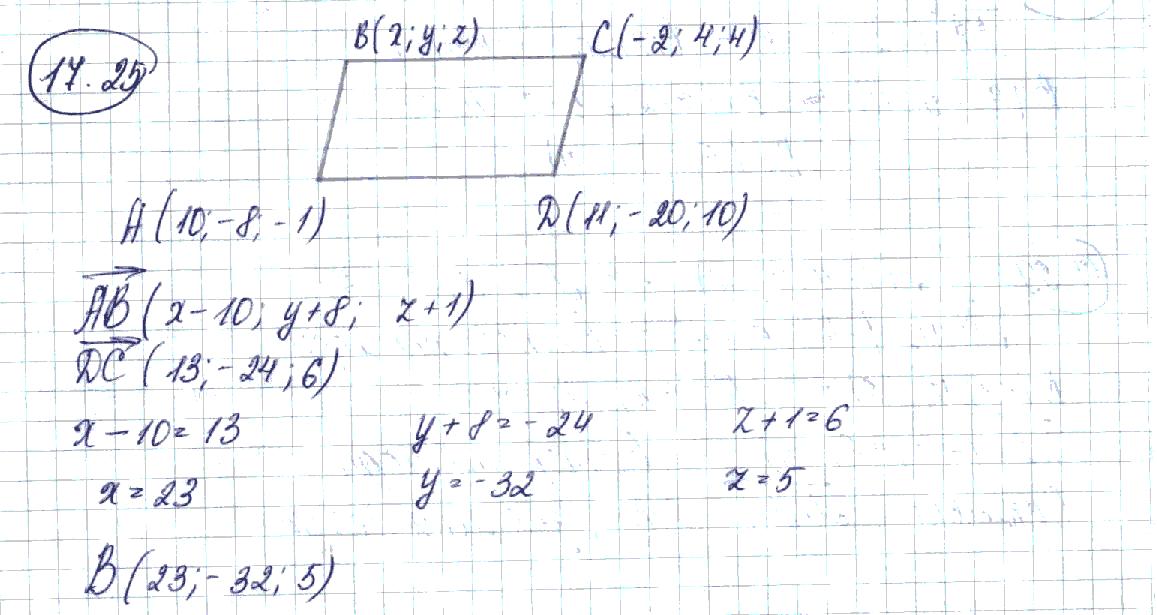 17.25
B(x; y; z) C(-2; 4; 4)
A(10; -8; -1) D(11; -20; 10)
AB(x-10; y+8; z+1)
DC(13; -24; 6)
x-10=13 y+8=-24 z+1=6
x=23 y=-32 z=5
B(23; -32; 5)